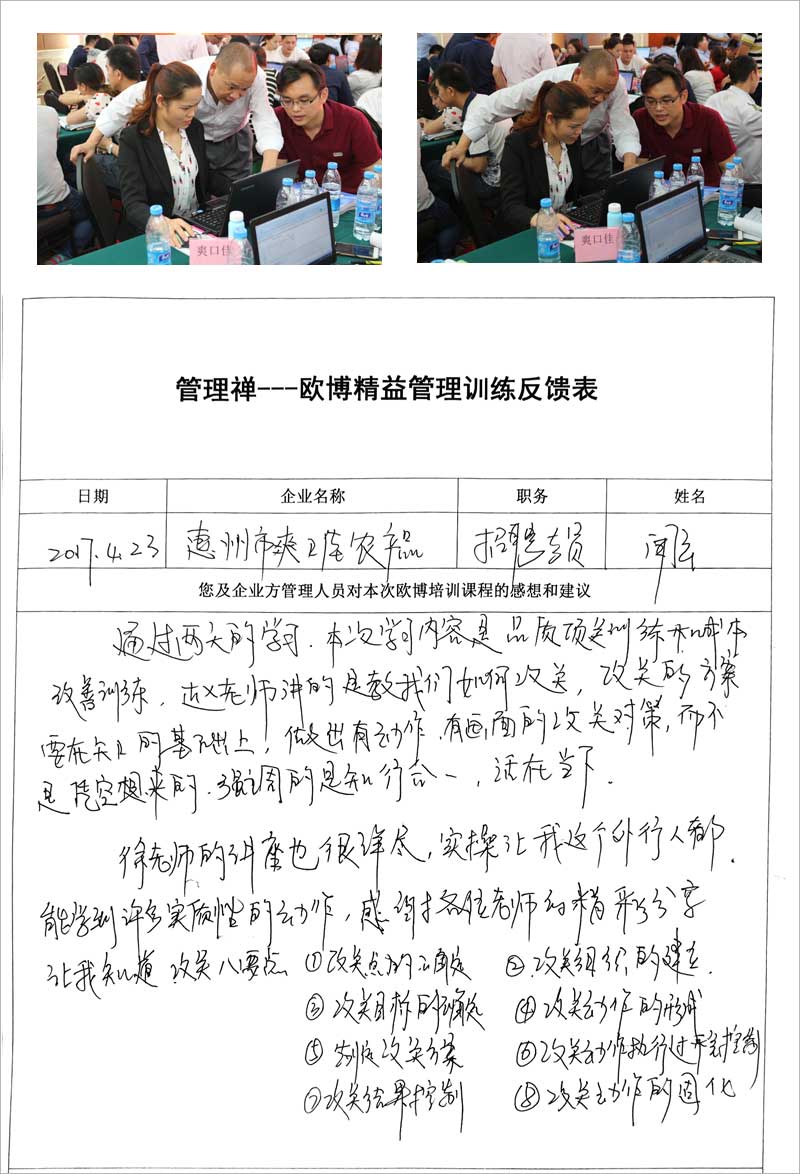 爽口佳
爽口佳
管理禅---欧博精益管理训练反馈表
日期 企业名称 职务 姓名
2017.4.23 惠州市爽口佳农产品 招聘专员
您及企业方管理人员对本次欧博培训课程的感想和建议
通过两天的学习.本次学习内容是品质攻关训练和成本
改善训练,老师讲的是教我们如何攻关,攻关的方案
要在的基础上,做出有动作.有画面的攻关对策,而不
是凭空想来的.强调的是知行合一,活在当下.
徐老师的讲座也很详尽,实操让我这个外行人都.
能学到许多实质性的动作,感谢各位老师的精彩分享
让我知道攻关八要点 ①攻关点的确定 ②.攻关组织的建立.
③攻关目标的确定 ④攻关动作的形成
⑤制定攻关方案 ⑥攻关动作执行过程控制
⑦攻关结果控制 ⑧攻关动作的固化